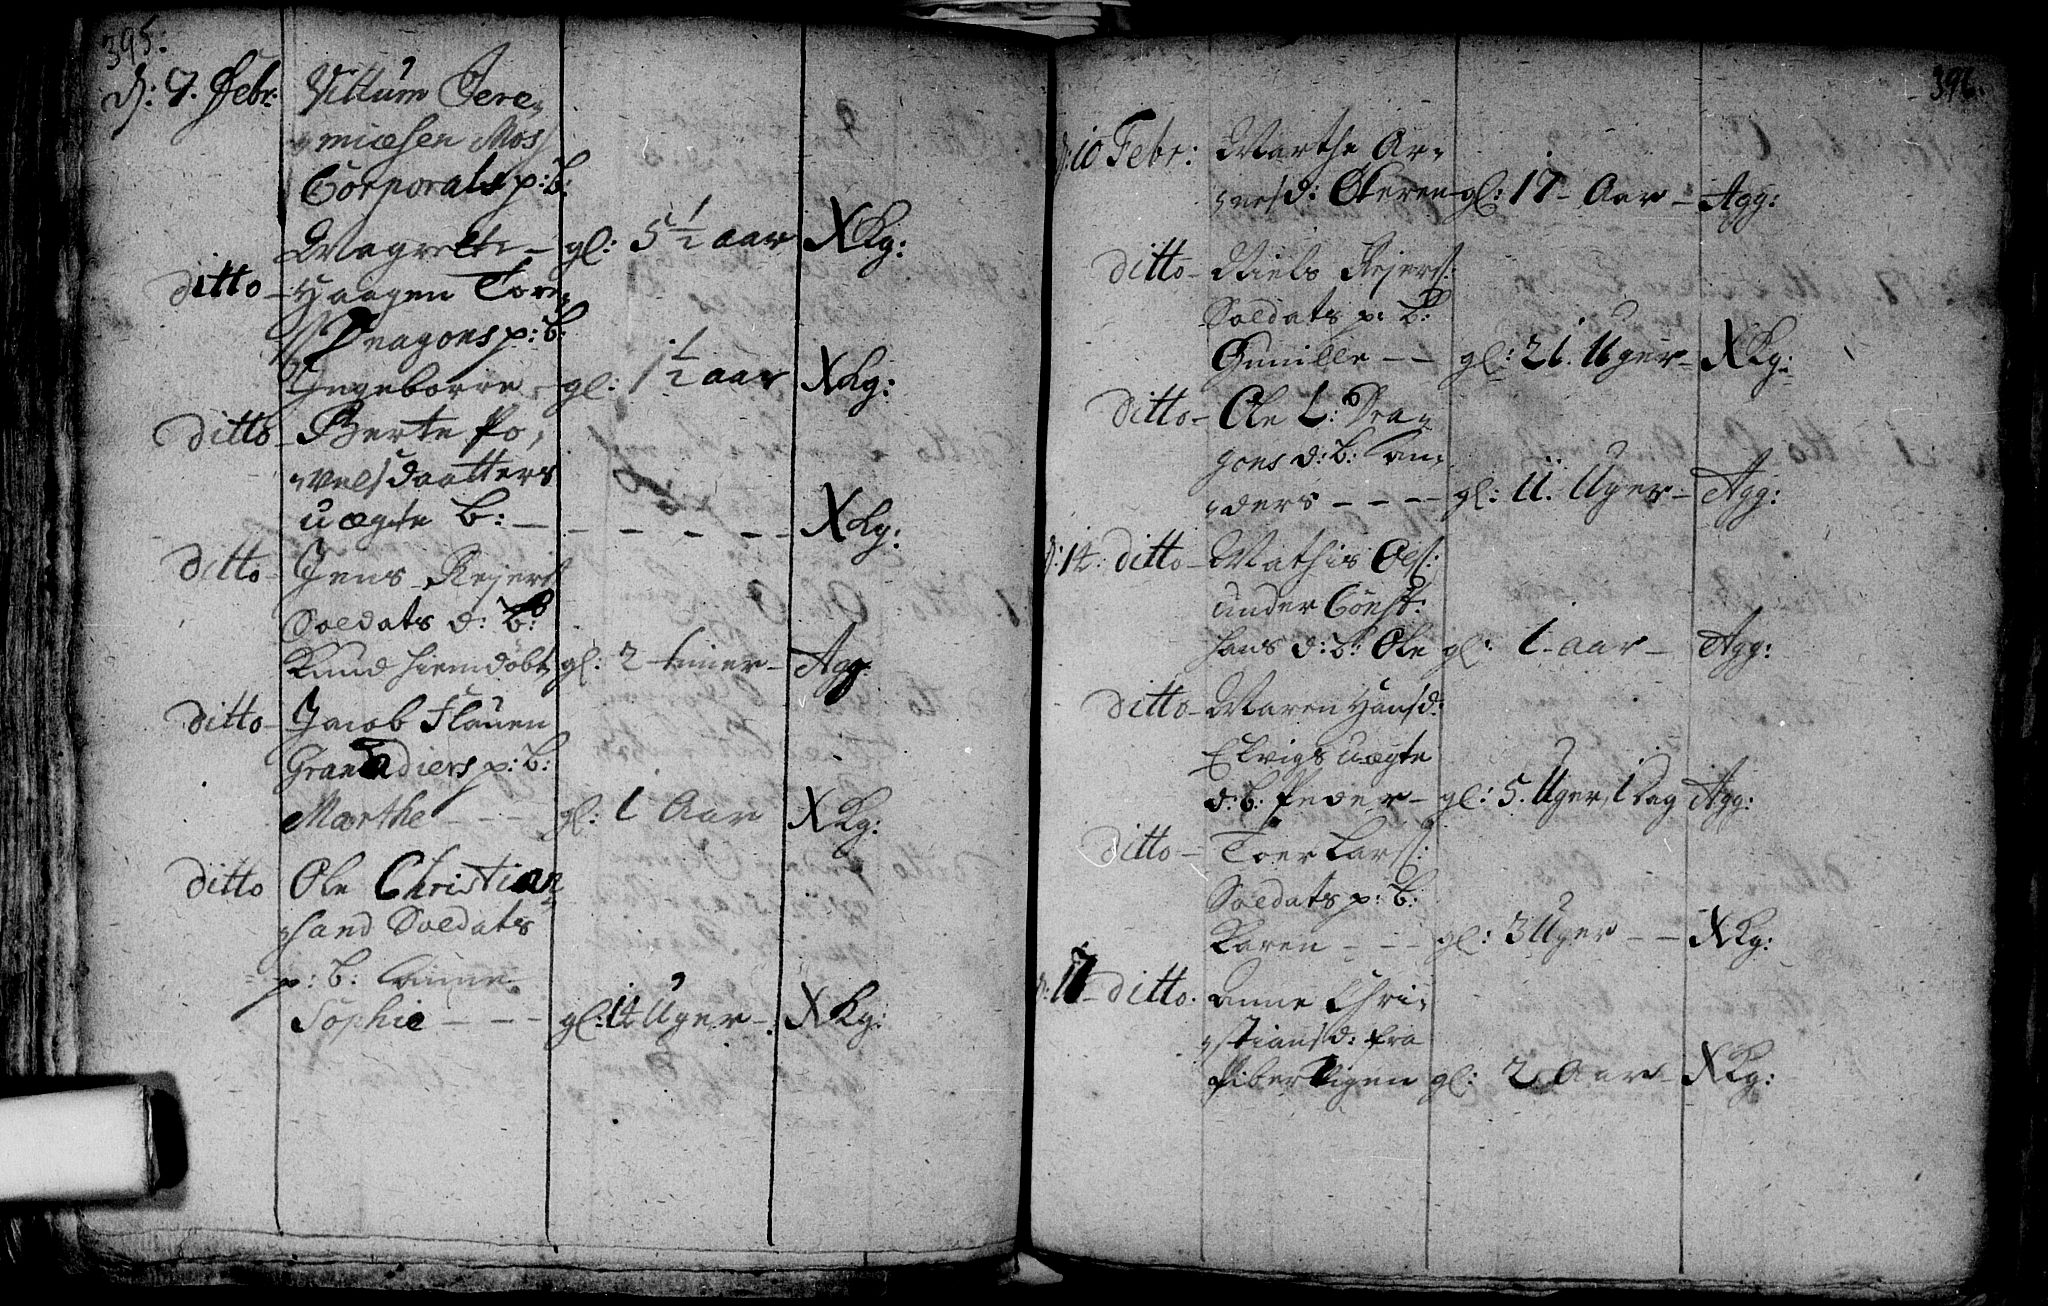 395.
d: 7. Febr: Villum Jere-
miæsen Moss
Corporals p: b:
Magrette - gl: 5 1/2 aar XKg:
ditto - Haagen Tor
Dragons p: b:
Ingeborre - gl: 1 1/2 aar XKg:
ditto - Berte Po,
velsdaatters
uægte B: - - - - - XKg:
ditto - Jens Rejers
Soldats d: B:
Knud hiemdöbt gl: 2 timer - Agg:
ditto - Jacob Flauen
Granadiers p: b:
Marthe - - - gl: 1 Aar XKg:
ditto Ole Christian
sand Soldats
p: b: Anne
Sophie - - - gl: 14 Uger - XKg:
396.
d: 10 Febr: Marthe Ar-
nesd: Öteren gl: 17 - Aar - Agg:
ditto - Niels Rejers:
Soldats p: B:
Gunille - - gl: 21. Uger - XKg:
ditto - Ole L: Dra-
gons d: b: An-
ders - - - - gl: 11. Uger - Agg:
d: 14. ditto - Mathis Ols:
under Const:
hans d: b: Ole gl: 1 - aar - Agg:
ditto - Maren Hansd:
Elvigs uægte
d: b: Peder - gl: 5. Uger, 1 Dag Agg:
ditto - Toer Lars:
Soldats p: b:
Karen - - - gl: 3 Uger - - XKg:
d: 17 - ditto. Anne Chri-
stiansd: fra
Pibervigen gl: 2 Aar - XKg: